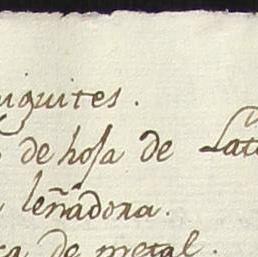 iquites.
de hoja de Lat
leñadora.
ca de metal.